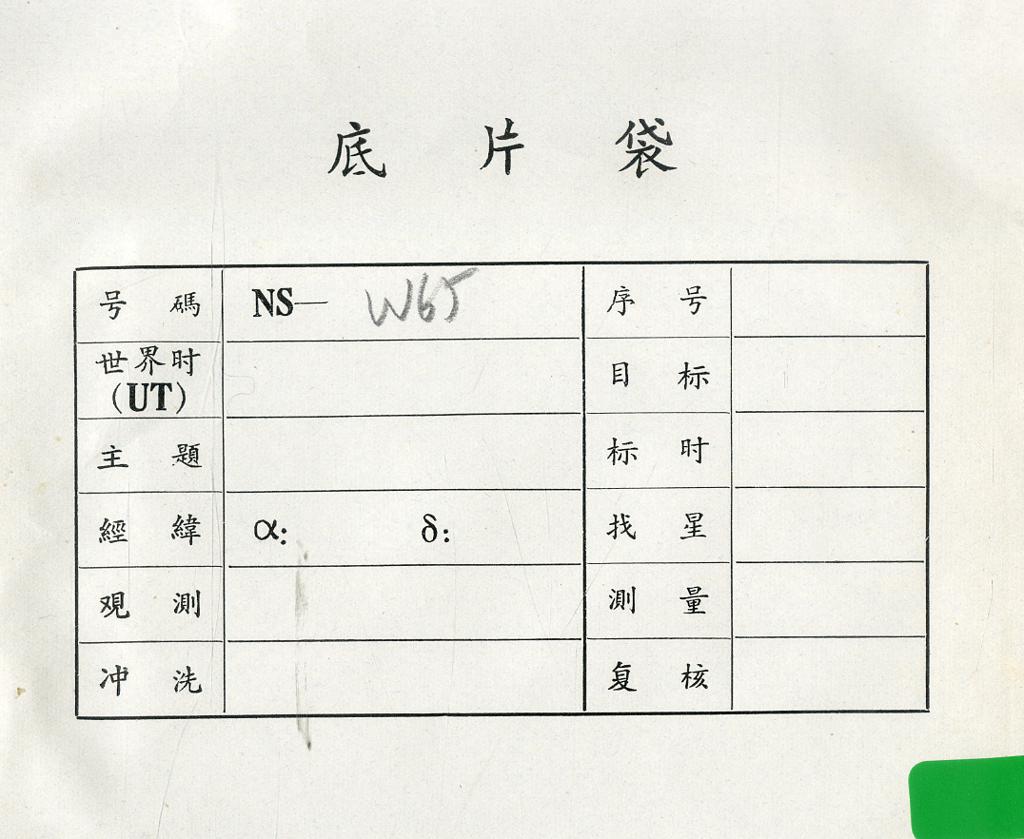 底片袋
号碼 NS— W65 序号
世界时(UT) 目标
主題 标时
經緯 α: δ: 找星
观測 測量
冲洗 复核